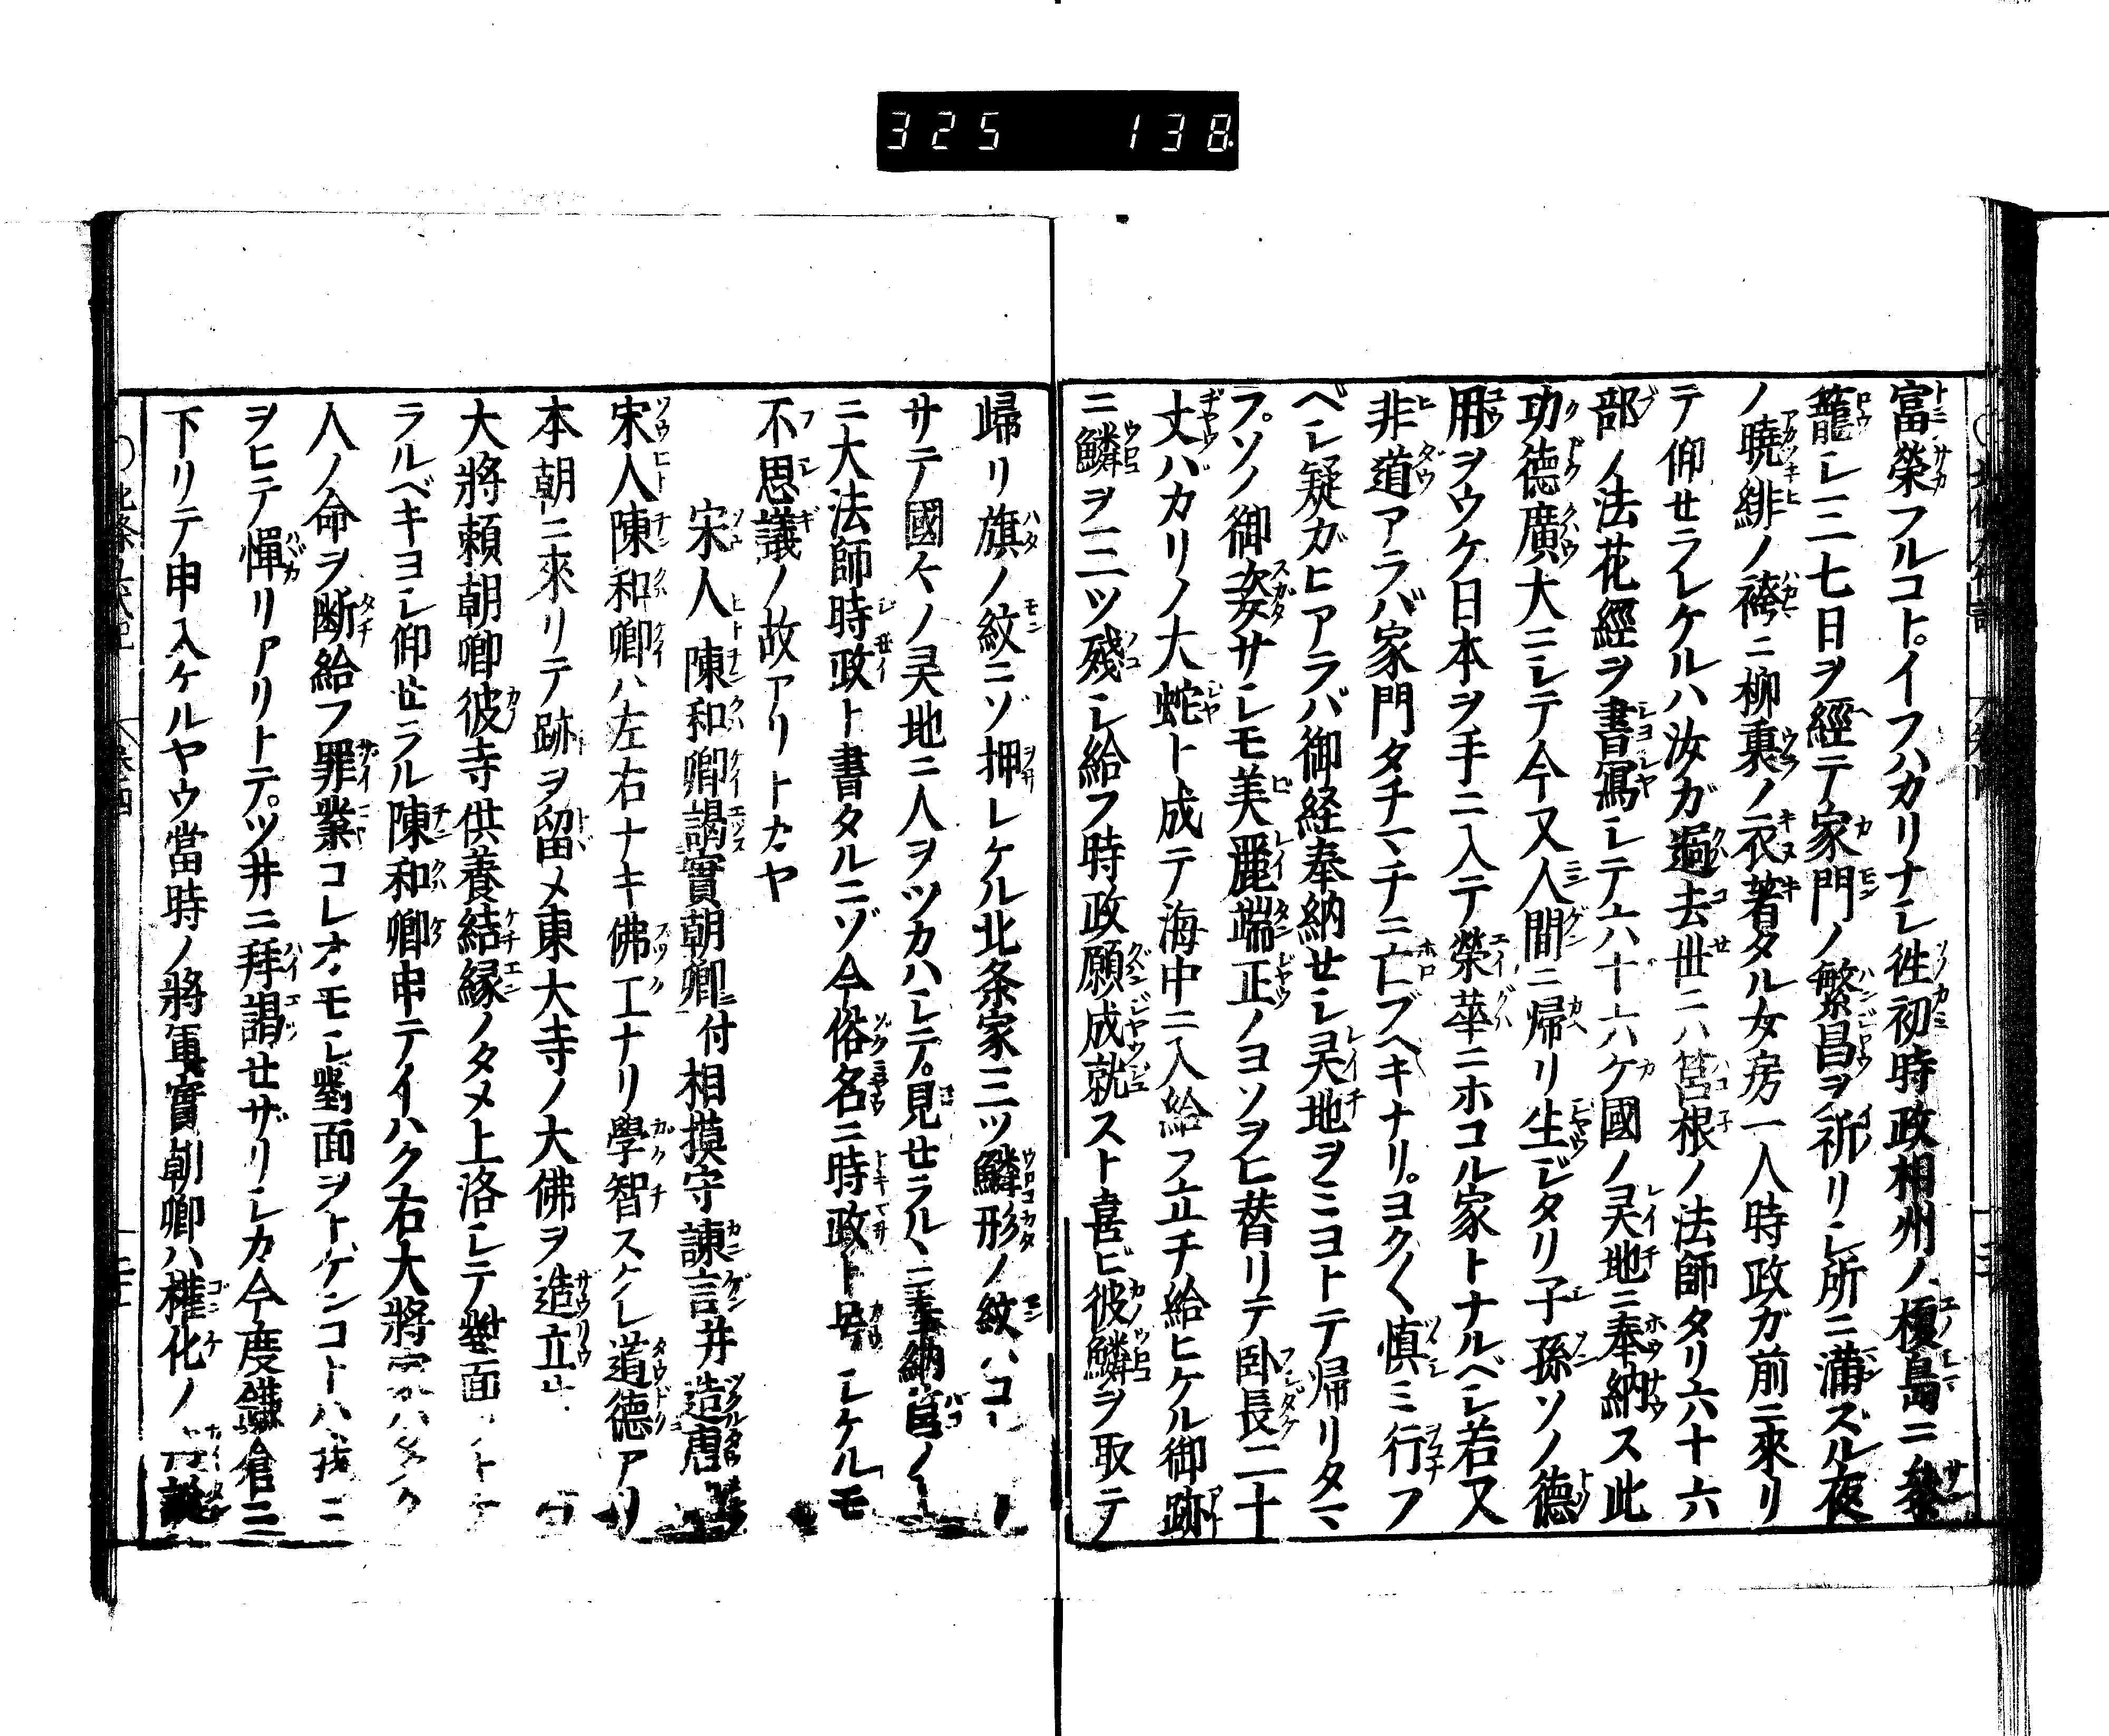 325 138
富榮フルコト。イフハカリナシ徃初時政相州ノ榎島ニ參
籠シ三七日ヲ經テ家門ノ繁昌ヲ祈リシ所ニ滿ズル夜
ノ曉緋ノ袴ニ柳裏ノ衣著タル女房一人時政ガ前ニ來リ
テ仰セラレケルハ汝ガ過去世ニハ筥根ノ法師タリ六十六
部ノ法花經ヲ書寫シテ六十六ケ國ノ㚑地ニ奉納ス此
功德廣大ニシテ今又人間ニ帰リ生ジタリ子孫ソノ德
用ヲウケ日本ヲ手ニ入テ榮華ニホコル家トナルベシ若又
非道アラバ家門タチマチニ亡ブヘキナリ。ヨク〱慎ミ行フ
ベシ疑ガヒアラバ御経奉納セシ㚑地ヲミヨトテ帰リタマ
フ。ソノ御姿サシモ美麗端正ノヨソヲヒ替リテ臥長二十
丈バカリノ大蛇ト成テ海中ニ入給フ立チ給ヒケル御跡
ニ鱗ヲ三ツ殘シ給フ時政願成就スト喜ビ彼鱗ヲ取テ
歸リ旗ノ紋ニゾ押レケル北条家三ツ鱗形ノ紋ハコ
サテ國々ノ㚑地ニ人ヲツカハシテ。見セラルヽニ奉納筥ノ
ニ大法師時政ト書タルニゾ今俗名ニ時政ト号シケルモ
不思議ノ故アリトカヤ
宋人陳和卿謁實朝卿ニ付相摸守諫言并造唐
宋人陳和卿ハ左右ナキ佛工ナリ學智スグレ道德アリ
本朝ニ來リテ跡ヲ留メ東大寺ノ大佛ヲ造立
大將頼朝卿彼寺供養結縁ノタメ上洛シテ對面
ラルベキヨシ仰セラル陳和卿申テイハク右大將
人ノ命ヲ断給フ罪業コレオモシ對面ヲトゲンコトハ我ニ
ヲヒテ憚リアリトテ。ツ井ニ拜謁セザリシカ今度鎌倉ニ
下リテ申入ケルヤウ當時ノ將軍實朝卿ハ權化ノ